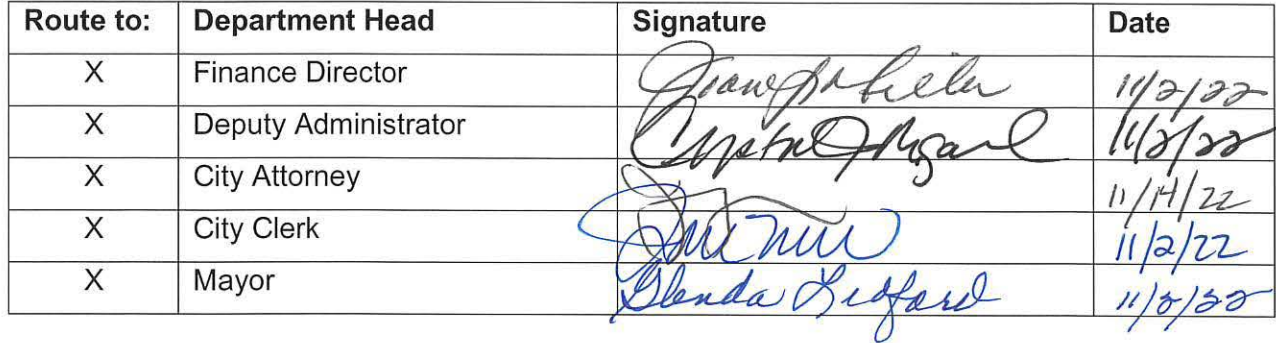 Route to: Department Head Signature Date
X Finance Director 11/2/22
X Deputy Administrator 11/2/22
X City Attorney 11/14/22
X City Clerk 11/2/22
X Mayor Glenda Ledford